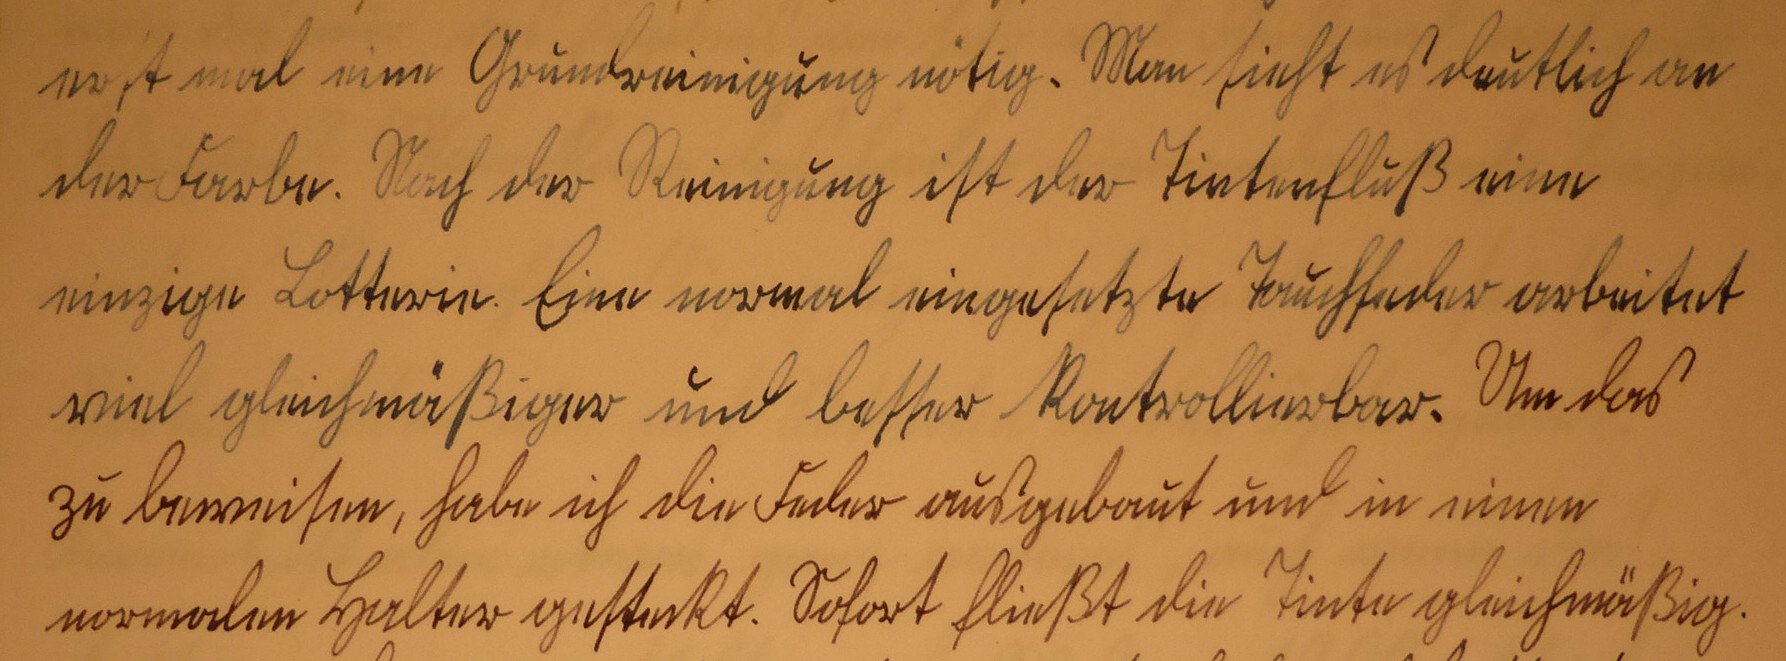 erst mal eine Grundreinigung nötig. Man sieht es deutlich an
der Farbe. Nach der Reinigung ist der Tintenfluß eine
einzige Lotterie. Eine normal eingesetzte Tauchfeder arbeitet
viel gleichmäßiger und besser kontrollierbar. Um das
zu beweisen, habe ich die Feder ausgebaut und in einen
normalen Halter gesteckt. Sofort fließt die Tinte gleichmäßig.